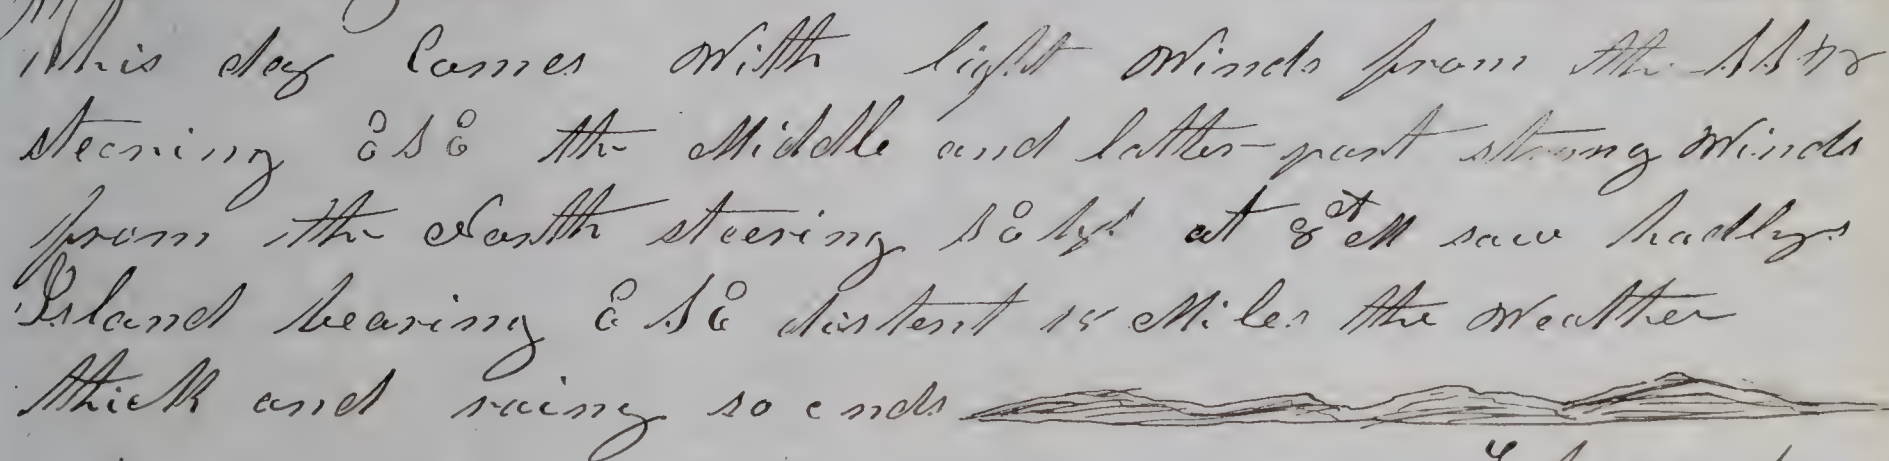 This day Comes With light Winds from the SSW
steering ESE the Middle and latter part strong Winds
from the North steering SE by at 8 AM saw hadlys
Island bearing E S E distent 15 Miles the Weather
thick and rainy so ends